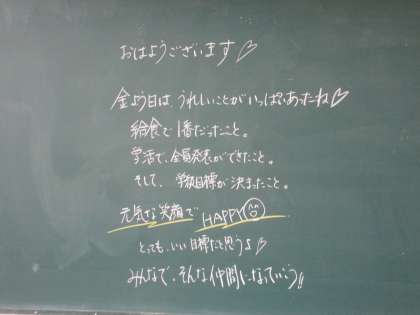 おはようございます♡
金よう日は、うれしいことがいっぱいあったね♡
給食で1番だったこと。
学活で、全員発表ができたこと。
そして、学級目標が決まったこと。
元気な笑顔で HAPPY☺
とっても、いい目標だと思うよ♡
みんなで、そんな仲間になっていこう!!